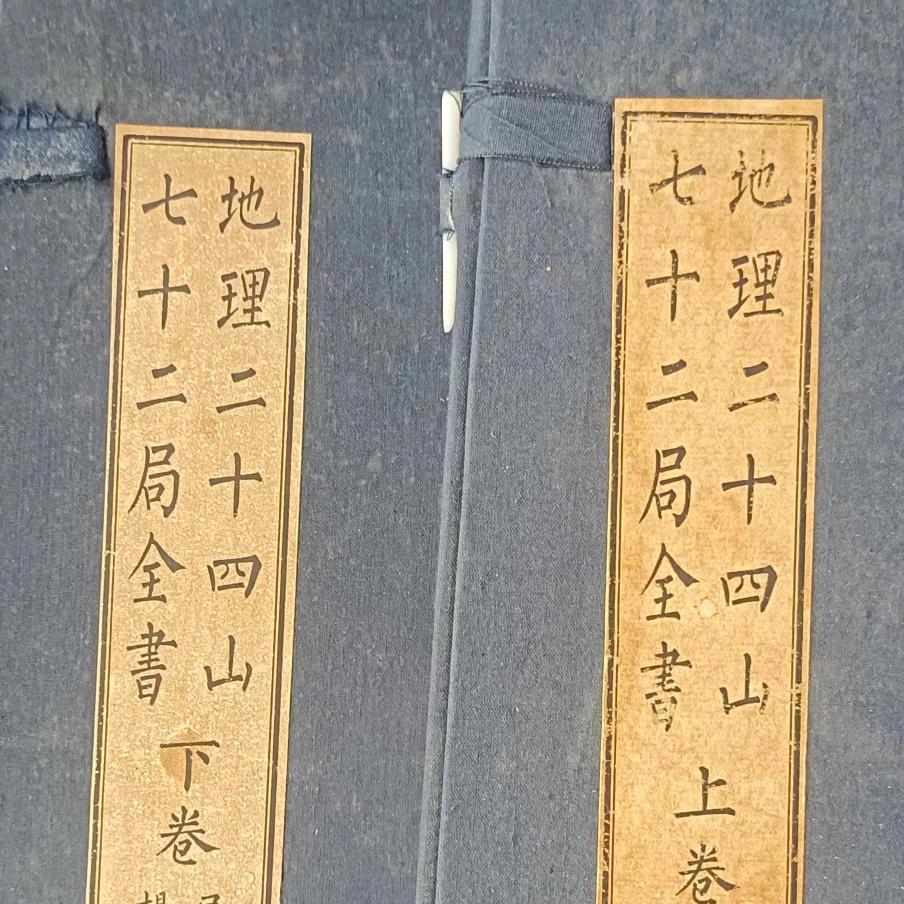 地理二十四山
七十二局全書
上卷
地理二十四山
七十二局全書
下卷